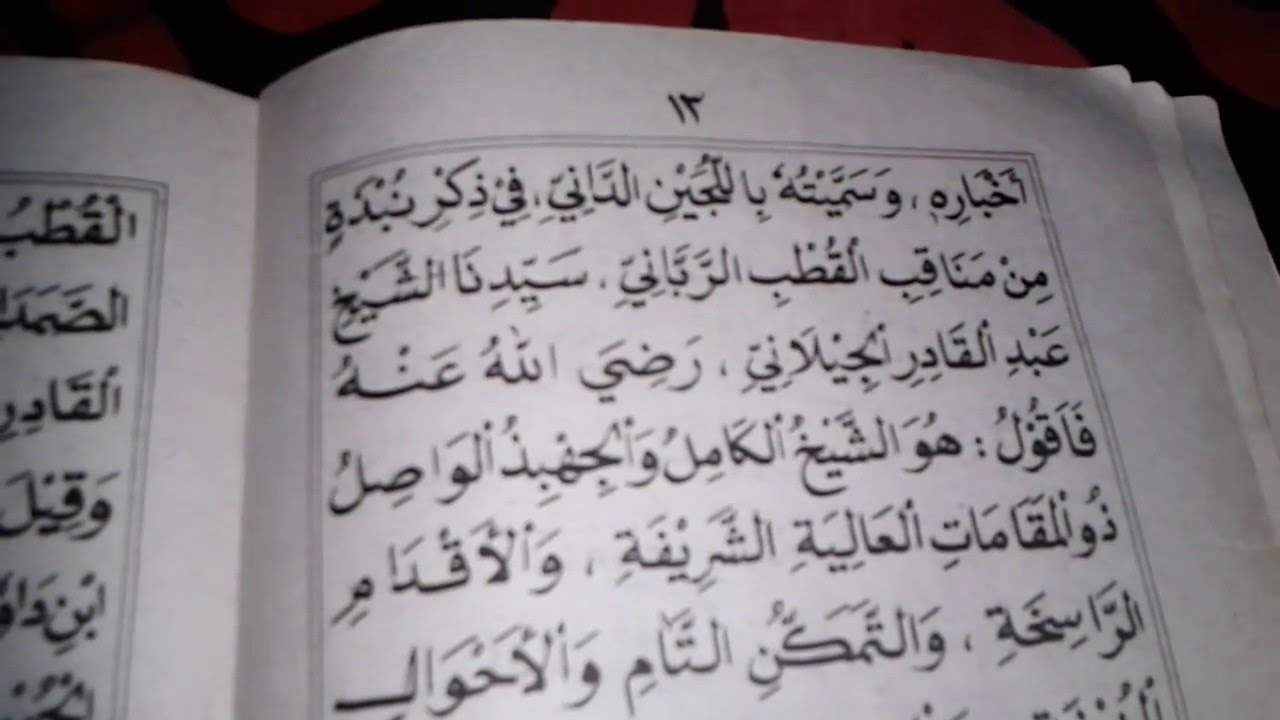 ١٣
أَخْبَارِهِ ، وَسَمَّيْتُهُ بِاللُّجَيْنِ الدَّانِيِّ، فِيْ ذِكْرِ نُبْذَةٍ
مِنْ مَنَاقِبِ الْقُطْبِ الرَّبَّانِيِّ ، سَيِّدِنَا الشَّيْخِ
عَبْدِ الْقَادِرِ الْجِيْلَانِيِّ ، رَضِيَ اللّٰهُ عَنْهُ
فَاَقُوْلُ : هُوَ الشَّيْخُ الْكَامِلُ وَالْجِهْبِذُ الْوَاصِلُ
ذُو الْمَقَامَاتِ الْعَالِيَةِ الشَّرِيْفَةِ ، وَالْأَقْدَامِ
الرَّاسِخَةِ ، وَالتَّمَكُّنِ التَّامِ وَالْأَحْوَالِ
الْقُطْبُ
الْقَادِرِ
وَقِيْلَ
ابْنِ